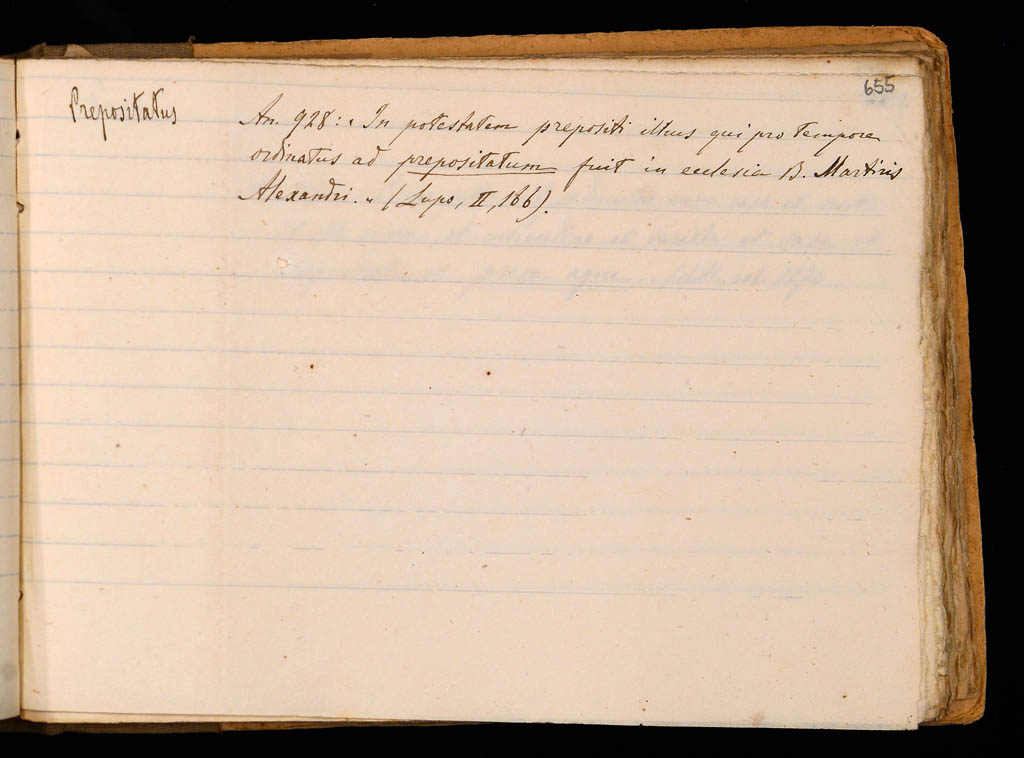 655
Prepositatus
An. 928: " In potestatem prepositi illius qui pro tempore
ordinatus ad prepositatum fuit in ecclesia B. Martiris
Alexandri. " (Lupo, II, 166).